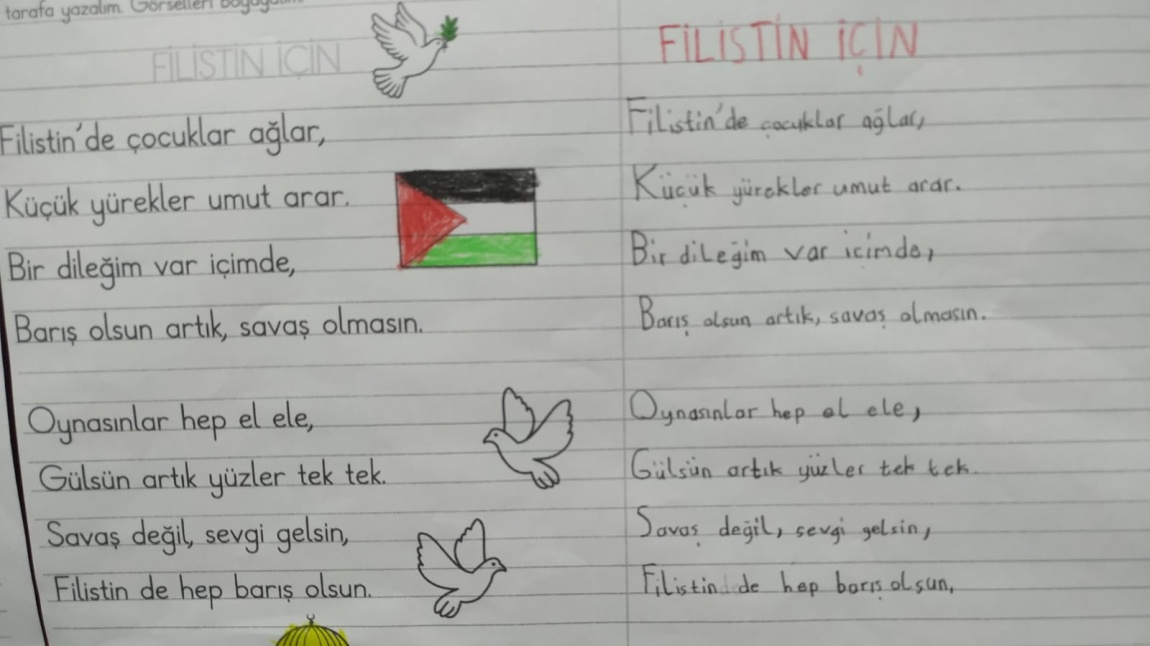 tarafa yazalım. Görselleri boyayalım.
FİLİSTİN İÇİN
Filistin'de çocuklar ağlar,
Küçük yürekler umut arar.
Bir dileğim var içimde,
Barış olsun artık, savaş olmasın.
Oynasınlar hep el ele,
Gülsün artık yüzler tek tek.
Savaş değil, sevgi gelsin,
Filistin de hep barış olsun.
FİLİSTİN İÇİN
Filistin'de çocuklar ağlar,
Küçük yürekler umut arar.
Bir dileğim var içimde,
Barış olsun artık, savaş olmasın.
Oynasınlar hep el ele,
Gülsün artık yüzler tek tek.
Savaş değil, sevgi gelsin,
Filistin de hep barış olsun.